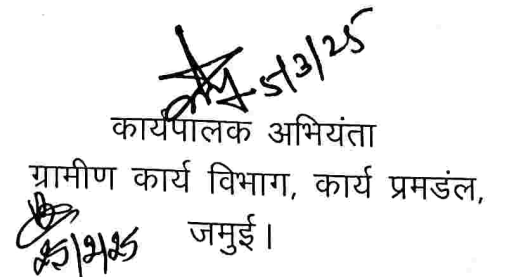 5/3/25
कार्यपालक अभियंता
ग्रामीण कार्य विभाग, कार्य प्रमडंल,
जमुई।
25/2/25